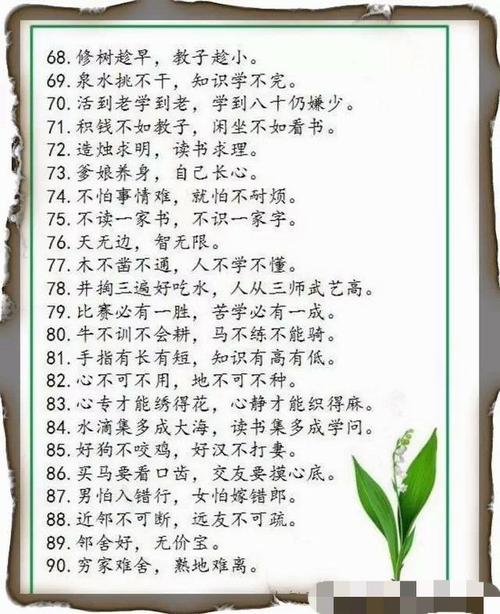 68. 修树趁早，教子趁小。
69. 泉水挑不干，知识学不完。
70. 活到老学到老，学到八十仍嫌少。
71. 积钱不如教子，闲坐不如看书。
72. 造烛求明，读书求理。
73. 爹娘养身，自己长心。
74. 不怕事情难，就怕不耐烦。
75. 不读一家书，不识一家字。
76. 天无边，智无限。
77. 木不凿不通，人不学不懂。
78. 井掏三遍好吃水，人从三师武艺高。
79. 比赛必有一胜，苦学必有一成。
80. 牛不训不会耕，马不练不能骑。
81. 手指有长有短，知识有高有低。
82. 心不可不用，地不可不种。
83. 心专才能绣得花，心静才能织得麻。
84. 水滴集多成大海，读书集多成学问。
85. 好狗不咬鸡，好汉不打妻。
86. 买马要看口齿，交友要摸心底。
87. 男怕入错行，女怕嫁错郎。
88. 近邻不可断，远友不可疏。
89. 邻舍好，无价宝。
90. 穷家难舍，熟地难离。